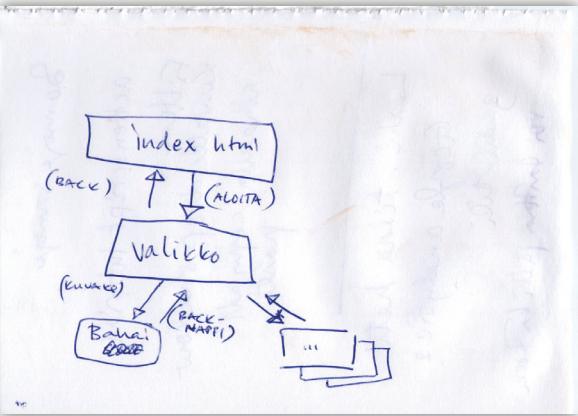 index html
(BACK)
(ALOITA)
valikko
(KUVAKE)
(BACK-
NAPPI)
Bahai
...